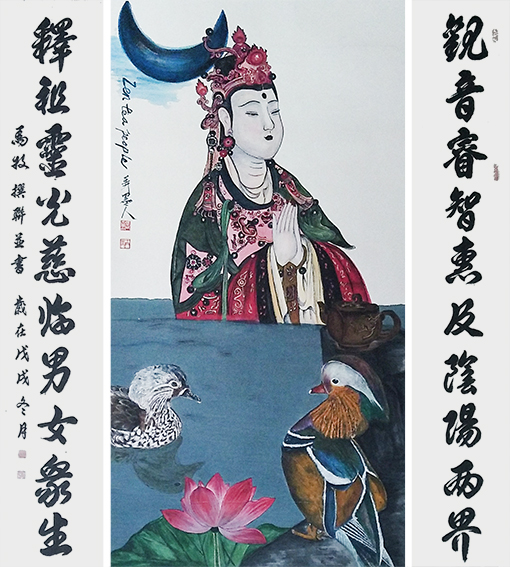 觀音睿智惠及陰陽兩界
釋祖靈光慈臨男女眾生
馬牧撰聯並書 歲在戊戌冬月
Zen tea people